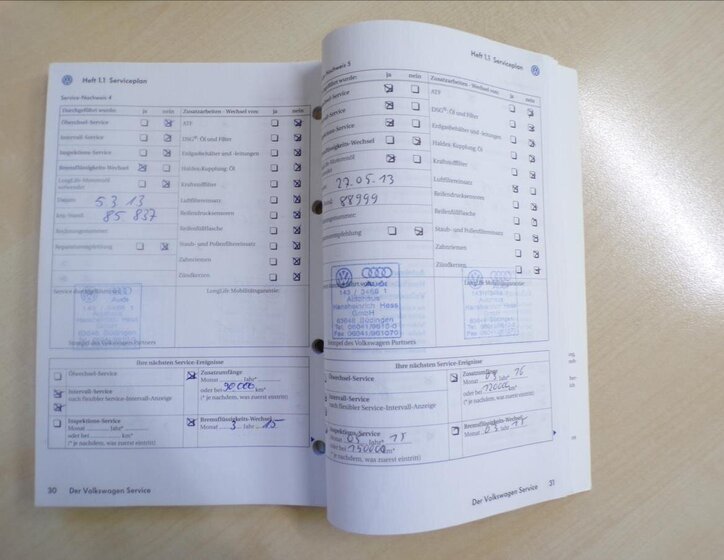 Heft 1.1 Serviceplan
Service-Nachweis 4
Durchgeführt wurde: ja nein Zusatzarbeiten - Wechsel von: nein
Ölwechsel-Service ATF
Intervall-Service DSG®-Öl und Filter
Inspektions-Service Erdgasbehälter und -leitungen
Bremsflüssigkeits-Wechsel Haldex-Kupplung: Öl
LongLife-Motorenöl verwendet Kraftstofffilter
Datum: 5 3 13 Luftfiltereinsatz
km-Stand: 85 837 Reifendrucksensoren
Rechnungsnummer: Reifenfüllflasche
Reparaturempfehlung Staub- und Pollenfiltereinsatz
Zahnriemen
Zündkerzen
Service durchgeführt
LongLife Mobilitätsgarantie:
Stempel des Volkswagen Partners
Ihre nächsten Service-Ereignisse
Ölwechsel-Service Zusatzumfänge
Monat Jahr*
Intervall-Service oder bei 90000 km*
nach flexibler Service-Intervall-Anzeige (* je nachdem, was zuerst eintritt)
Inspektions-Service Bremsflüssigkeits-Wechsel
Monat Jahr* Monat 3 Jahr 15
oder bei km*
(* je nachdem, was zuerst eintritt)
30 Der Volkswagen Service
Heft 1.1 Serviceplan
Nachweis 5
wurde: ja nein Zusatzarbeiten - Wechsel von: ja nein
-Service ATF
-Service DSG®-Öl und Filter
-Service Erdgasbehälter und -leitungen
-Wechsel Haldex-Kupplung: Öl
Kraftstofffilter
27.05.13 Luftfiltereinsatz
88999 Reifendrucksensoren
Reifenfüllflasche
Staub- und Pollenfiltereinsatz
Zahnriemen
Zündkerzen
LongLife Mobilitätsgarantie:
Audi
143 / 3469 1
Autohaus
Hansheinrich Hess
GmbH
63648 Büdingen
Tel. 06041/9610-0
Fax 06041/961070
Stempel des Volkswagen Partners
Ihre nächsten Service-Ereignisse
Ölwechsel-Service Zusatzumfänge
Monat 03 Jahr* 16
Intervall-Service oder bei 120000 km*
nach flexibler Service-Intervall-Anzeige (* je nachdem, was zuerst eintritt)
Inspektions-Service Bremsflüssigkeits-Wechsel
Monat 03 Jahr* 15 Monat 03 Jahr 15
oder bei km*
(* je nachdem, was zuerst eintritt)
Der Volkswagen Service 31